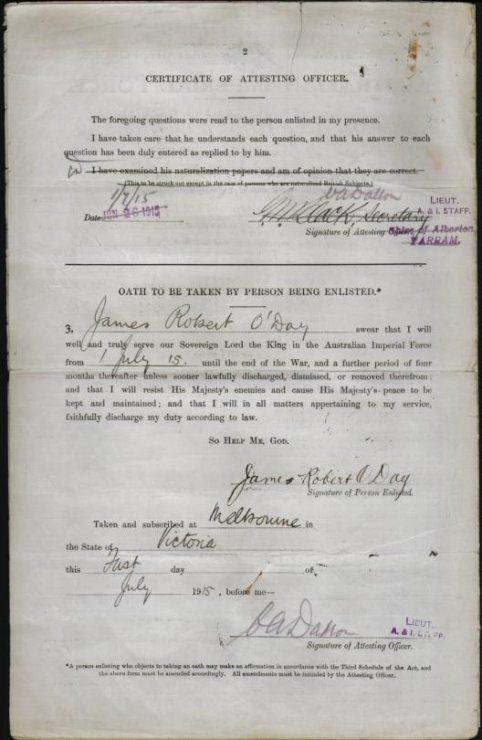 2
CERTIFICATE OF ATTESTING OFFICER.
The foregoing questions were read to the person enlisted in my presence.
I have taken care that he understands each question, and that his answer to each
question has been duly entered as replied to by him.
I have examined his naturalization papers and am of opinion that they are correct.
(This to be struck out except in the case of persons who are naturalized British Subjects.)
1/7/15
Date JUN 26 1915
LIEUT.
A. & I. STAFF.
Secretary
Signature of Attesting
Shire of Alberton,
YARRAM.
OATH TO BE TAKEN BY PERSON BEING ENLISTED.*
3. James Robert O'Day swear that I will
well and truly serve our Sovereign Lord the King in the Australian Imperial Force
from 1 July 15. until the end of the War, and a further period of four
months thereafter unless sooner lawfully discharged, dismissed, or removed therefrom;
and that I will resist His Majesty's enemies and cause His Majesty's peace to be
kept and maintained; and that I will in all matters appertaining to my service,
faithfully discharge my duty according to law.
SO HELP ME, GOD.
James Robert O'Day
Signature of Person Enlisted.
Taken and subscribed at Melbourne in
the State of Victoria
this day of
July 1915, before me—
LIEUT.
A. & I. STAFF.
Signature of Attesting Officer.
*A person enlisting who objects to taking an oath may make an affirmation in accordance with the Third Schedule of the Act, and
the above form must be amended accordingly. All amendments must be initialed by the Attesting Officer.